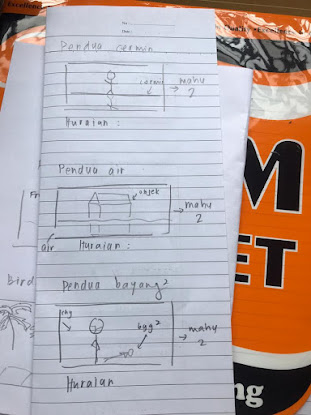 No :
Date :
Pendua cermin
cermin
mahu
2
Huraian :
Pendua air
objek
mahu
2
air
Huraian :
Pendua bayang²
chy
byg²
mahu
2
Huraian
Bird
M
ET
ng